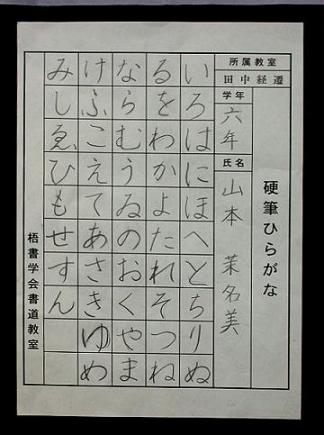 硬筆ひらがな
所属教室
田中経遷
学年
六年
氏名
山本 茉名美
いろはにほへとちりぬ
るをわかよたれそつね
ならむうゐのおくやま
けふこえてあさきゆめ
みしゑひもせすん
梧書学会書道教室